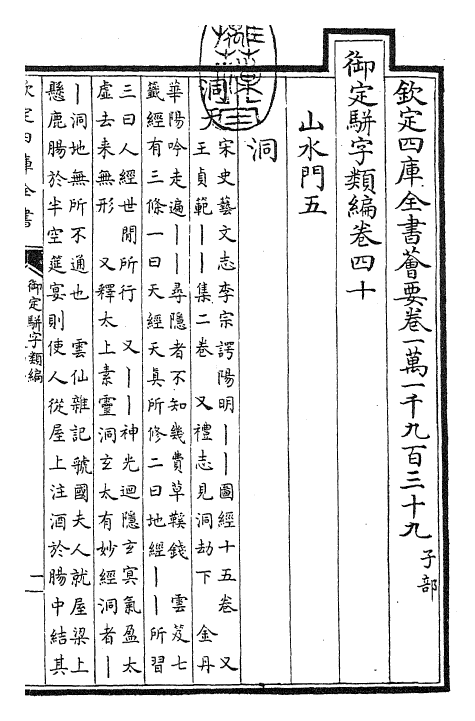 欽定四庫全書薈要卷一萬一千九百三十九 子部
御定駢字類編卷四十
山水門五
洞
洞天 宋史藝文志李宗諤陽明丨丨圖經十五卷 又
王貞範丨丨集二卷 又禮志見洞劫下 金丹
華陽吟走遍丨丨尋隱者不知幾費草鞵錢 雲笈七
籤經有三條一曰天經天真所修二曰地經丨丨所習
三曰人經世閒所行 又丨丨神光迴隱玄冥氣盈太
虛去来無形 又釋太上素靈洞玄太有妙經洞者丨
丨洞地無所不通也 雲仙雜記虢國夫人就屋梁上
懸鹿腸於半空筵宴則使人從屋上注酒於腸中結其
欽定四庫全書
御定駢字類編
一